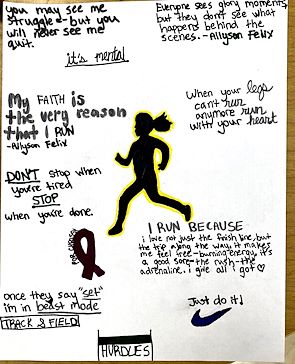 you may see me
struggle - but you
will never see me
quit.
Everyone sees glory moments,
but they don't see what
happens behind the
scenes. - Allyson Felix
it's mental
My FAITH is
the very reason
that I RUN
- Allyson Felix
When your legs
can't run
anymore run
with your heart
DON'T stop when
you're tired
STOP
when you're done.
I RUN BECAUSE
i love not just the finish line, but
the trip along the way, it makes
me feel free - burning energy, it's
a good sore - the rush - the
adrenaline. i give all i got
once they say "set"
i'm in beast mode
TRACK & FIELD
Just do it!
HURDLES